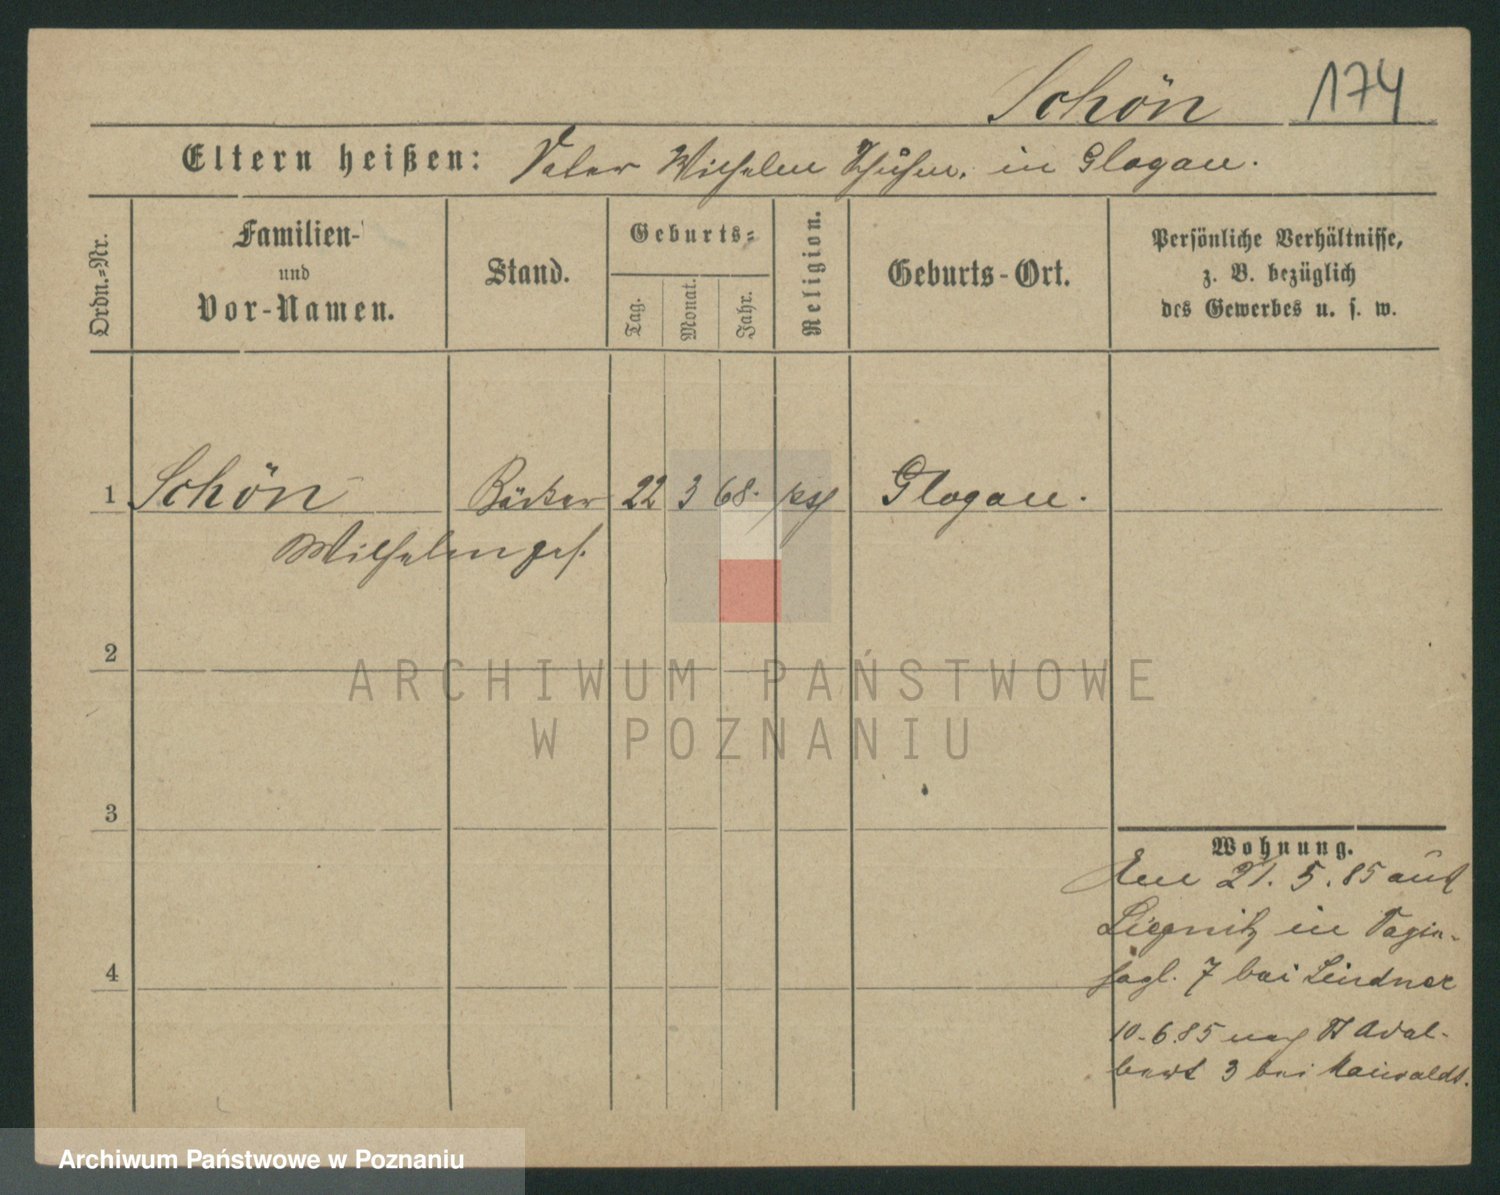 Schön 174
Eltern heißen: Vater Wilhelm in Glogau.
Ordn.=Nr.
Familien-
und
Vor-Namen.
Stand.
Geburts=
Tag.
Monat.
Jahr.
Religion.
Geburts-Ort.
Persönliche Verhältnisse,
z. B. bezüglich
des Gewerbes u. s. w.
1 Schön Bäcker 22 3 68. Glogau.
Wilhelm ges.
2
3
4
Wohnung.
Am 21. 5. 85 aus
Liegnitz in
7 bei Lindner
10.6.85 nach St Adal-
bert 3 bei
ARCHIWUM PAŃSTWOWE
W POZNANIU
Archiwum Państwowe w Poznaniu